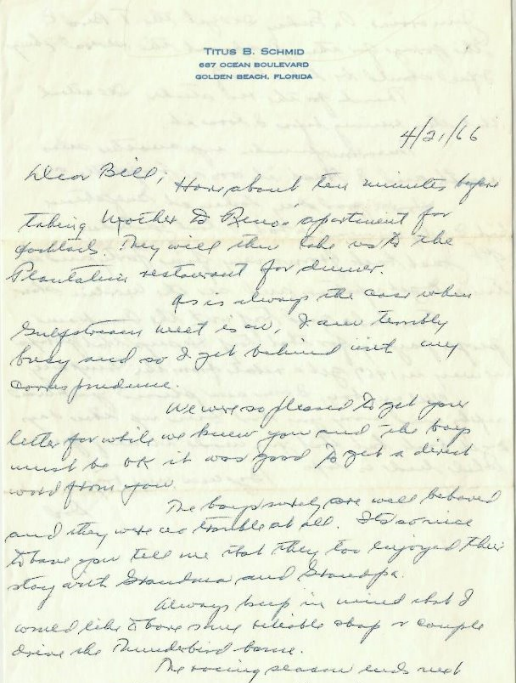 TITUS B. SCHMID
667 OCEAN BOULEVARD
GOLDEN BEACH, FLORIDA
4/21/66
Dear Bill; Have about ten minutes before
taking Mother to Reno's apartment for
cocktails. They will then take us to the
Plantation restaurant for dinner.
As is always the case when
Gulfstream meet is on, I am terribly
busy and so I get behind with my
correspondence.
We were so pleased to get your
letter for while we knew you and the boys
must be OK it was good to get a direct
word from you.
The boys surely are well behaved
and they were no trouble at all. It's so nice
to have you tell me that they too enjoyed their
stay with Grandma and Grandpa.
Always keep in mind that I
would like to have some reliable chap or couple
drive the Thunderbird home.
The racing season ends next